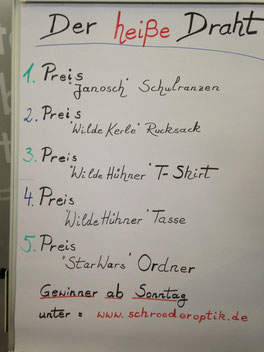 Der heiße Draht
1. Preis
"Janosch" Schulranzen
2. Preis
"Wilde Kerle" Rucksack
3. Preis
"Wilde Hühner" T-Shirt
4. Preis
"Wilde Hühner" Tasse
5. Preis
"Star Wars" Ordner
Gewinner ab Sonntag
unter: www.schroederoptik.de